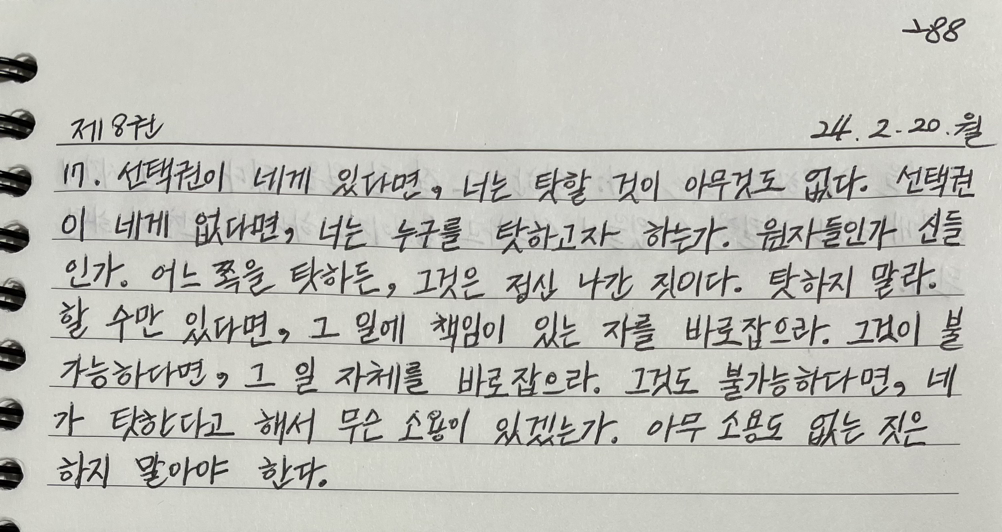 -88
제8권 24. 2. 20. 월
17. 선택권이 네게 있다면, 너는 탓할 것이 아무것도 없다. 선택권
이 네게 없다면, 너는 누구를 탓하고자 하는가. 원자들인가 신들
인가. 어느 쪽을 탓하든, 그것은 정신 나간 짓이다. 탓하지 말라.
할 수만 있다면, 그 일에 책임이 있는 자를 바로잡으라. 그것이 불
가능하다면, 그 일 자체를 바로잡으라. 그것도 불가능하다면, 네
가 탓한다고 해서 무슨 소용이 있겠는가. 아무 소용도 없는 짓은
하지 말아야 한다.